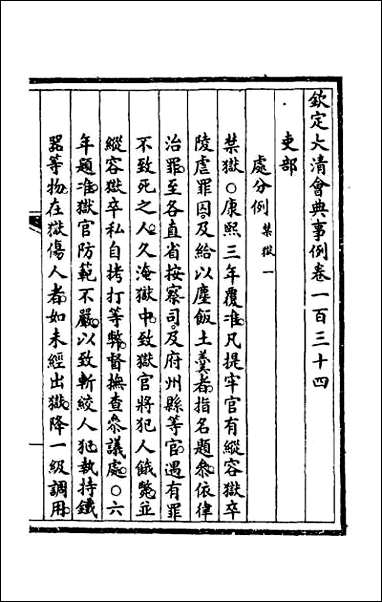 欽定大清會典事例卷一百三十四
吏部
處分例禁獄一
禁獄○康熙三年覆准凡提牢官有縱容獄卒
陵虐罪囚及給以塵飯土羹者指名題參依律
治罪至各直省按察司及府州縣等官遇有罪
不致死之人久淹獄中致獄官將犯人餓斃並
縱容獄卒私自拷打等弊督撫查參議處○六
年題准獄官防範不嚴以致斬絞人犯執持鐵
器等物在獄傷人者如未經出獄降一級調用